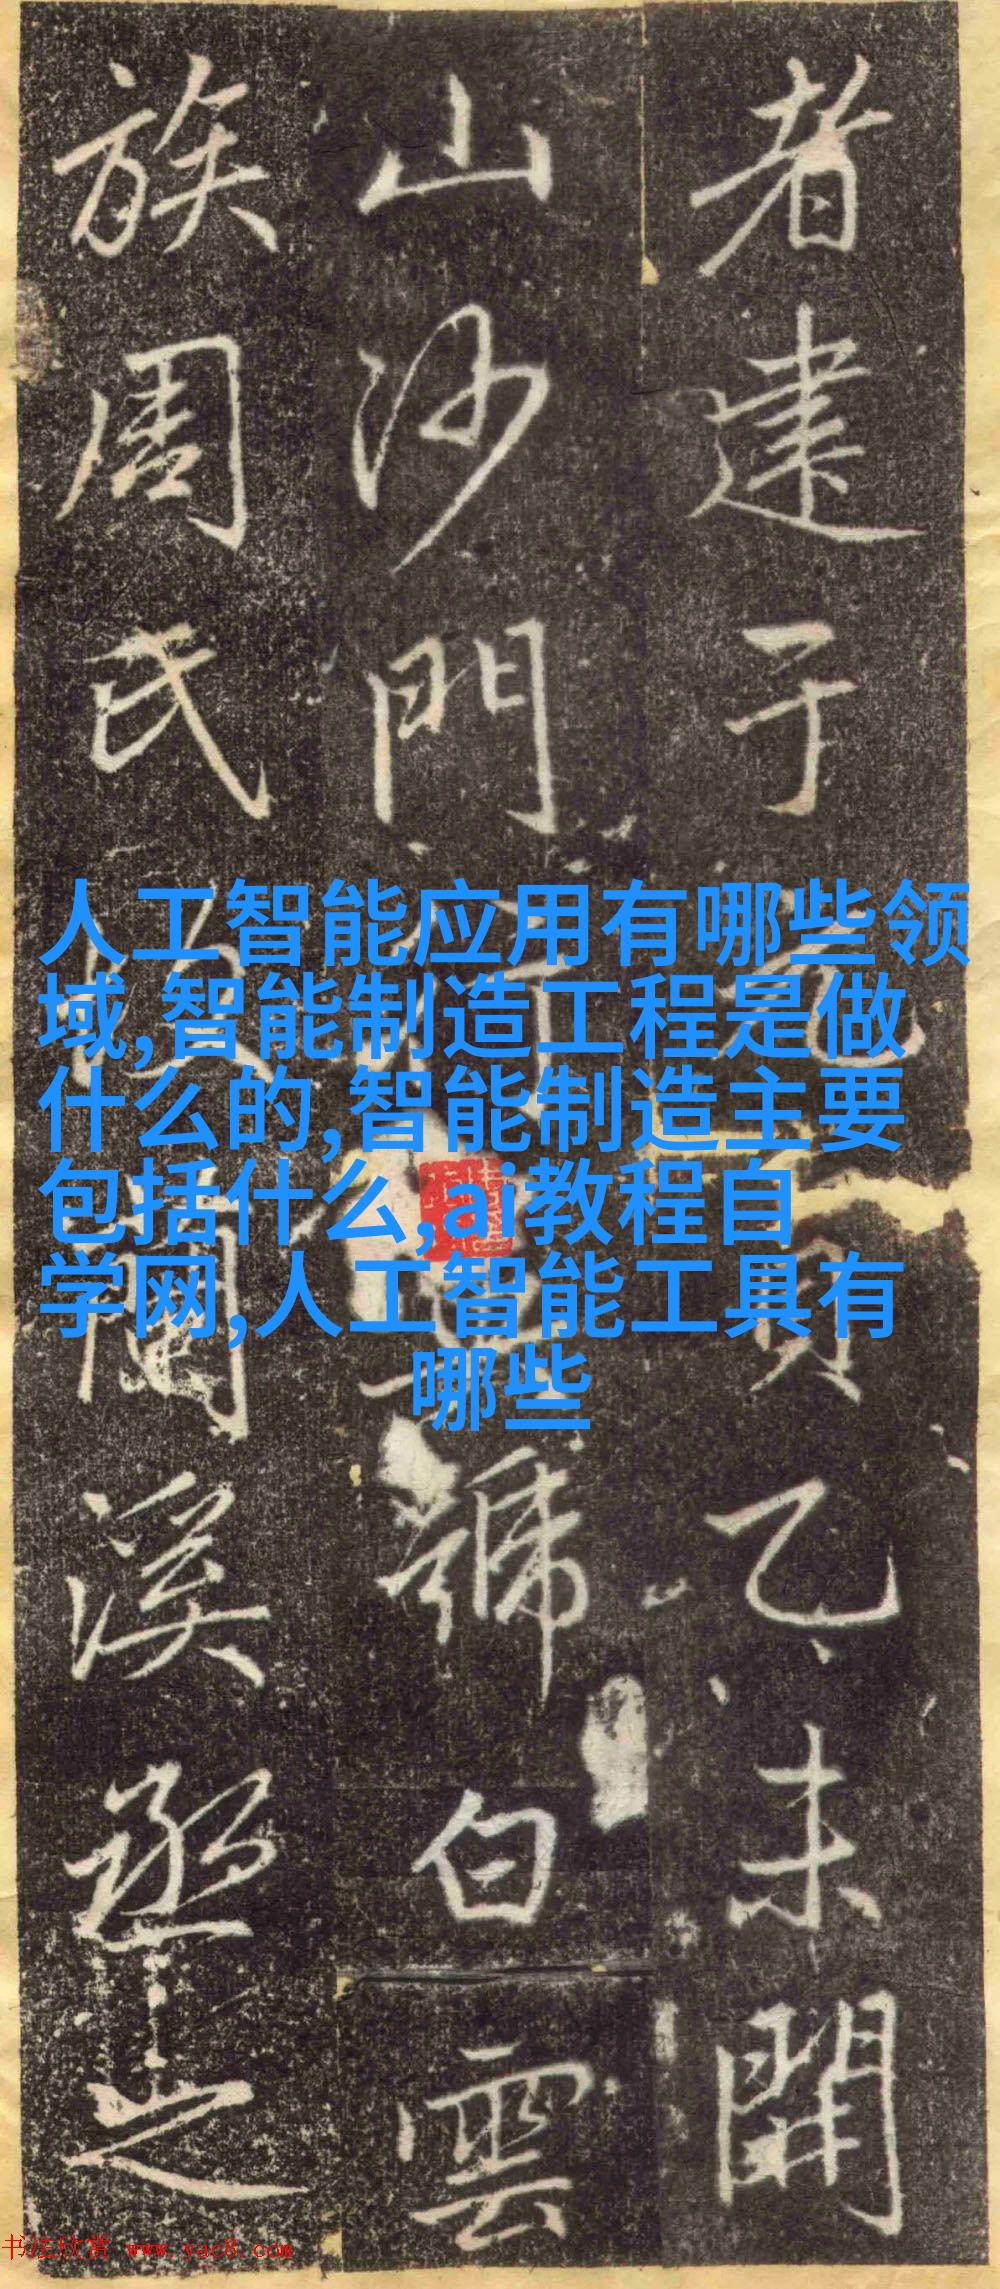 者建于
乙未開
山沙門
號白雲
族周氏
溪丞之
人工智能应用有哪些领
域,智能制造工程是做
什么的,智能制造主要
包括什么,ai教程自
学网,人工智能工具有
哪些
书法欣赏 www.yac8.com